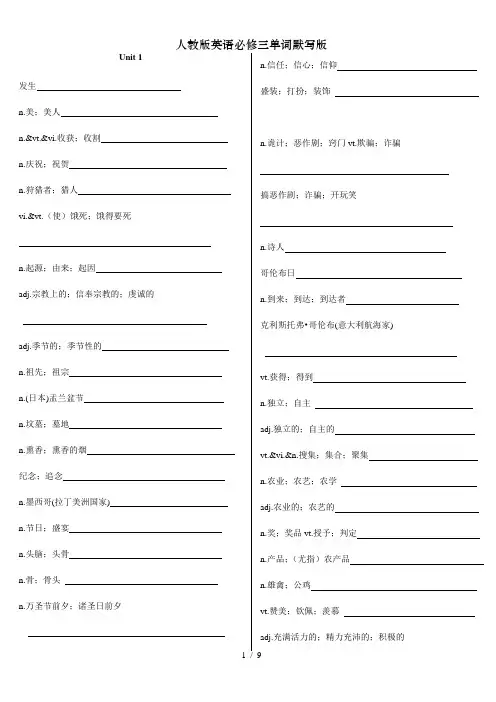 人教版英语必修三单词默写版
Unit 1
发生
n.美；美人
n.&vt.&vi.收获；收割
n.庆祝；祝贺
n.狩猎者；猎人
vi.&vt.（使）饿死；饿得要死
n.起源；由来；起因
adj.宗教上的；信奉宗教的；虔诚的
adj.季节的；季节性的
n.祖先；祖宗
n.(日本)盂兰盆节
n.坟墓；墓地
n.熏香；熏香的烟
纪念；追念
n.墨西哥(拉丁美洲国家)
n.节日；盛宴
n.头脑；头骨
n.骨；骨头
n.万圣节前夕；诸圣日前夕
n.信任；信心；信仰
盛装；打扮；装饰
n.诡计；恶作剧；窍门 vt.欺骗；诈骗
搞恶作剧；诈骗；开玩笑
n.诗人
哥伦布日
n.到来；到达；到达者
克利斯托弗•哥伦布(意大利航海家)
vt.获得；得到
n.独立；自主
adj.独立的；自主的
vt.&vi.&n.搜集；集合；聚集
n.农业；农艺；农学
adj.农业的；农艺的
n.奖；奖品 vt.授予；判定
n.产品；（尤指）农产品
n.雄禽；公鸡
vt.赞美；钦佩；羡慕
adj.充满活力的；精力充沛的；积极的
1 / 9